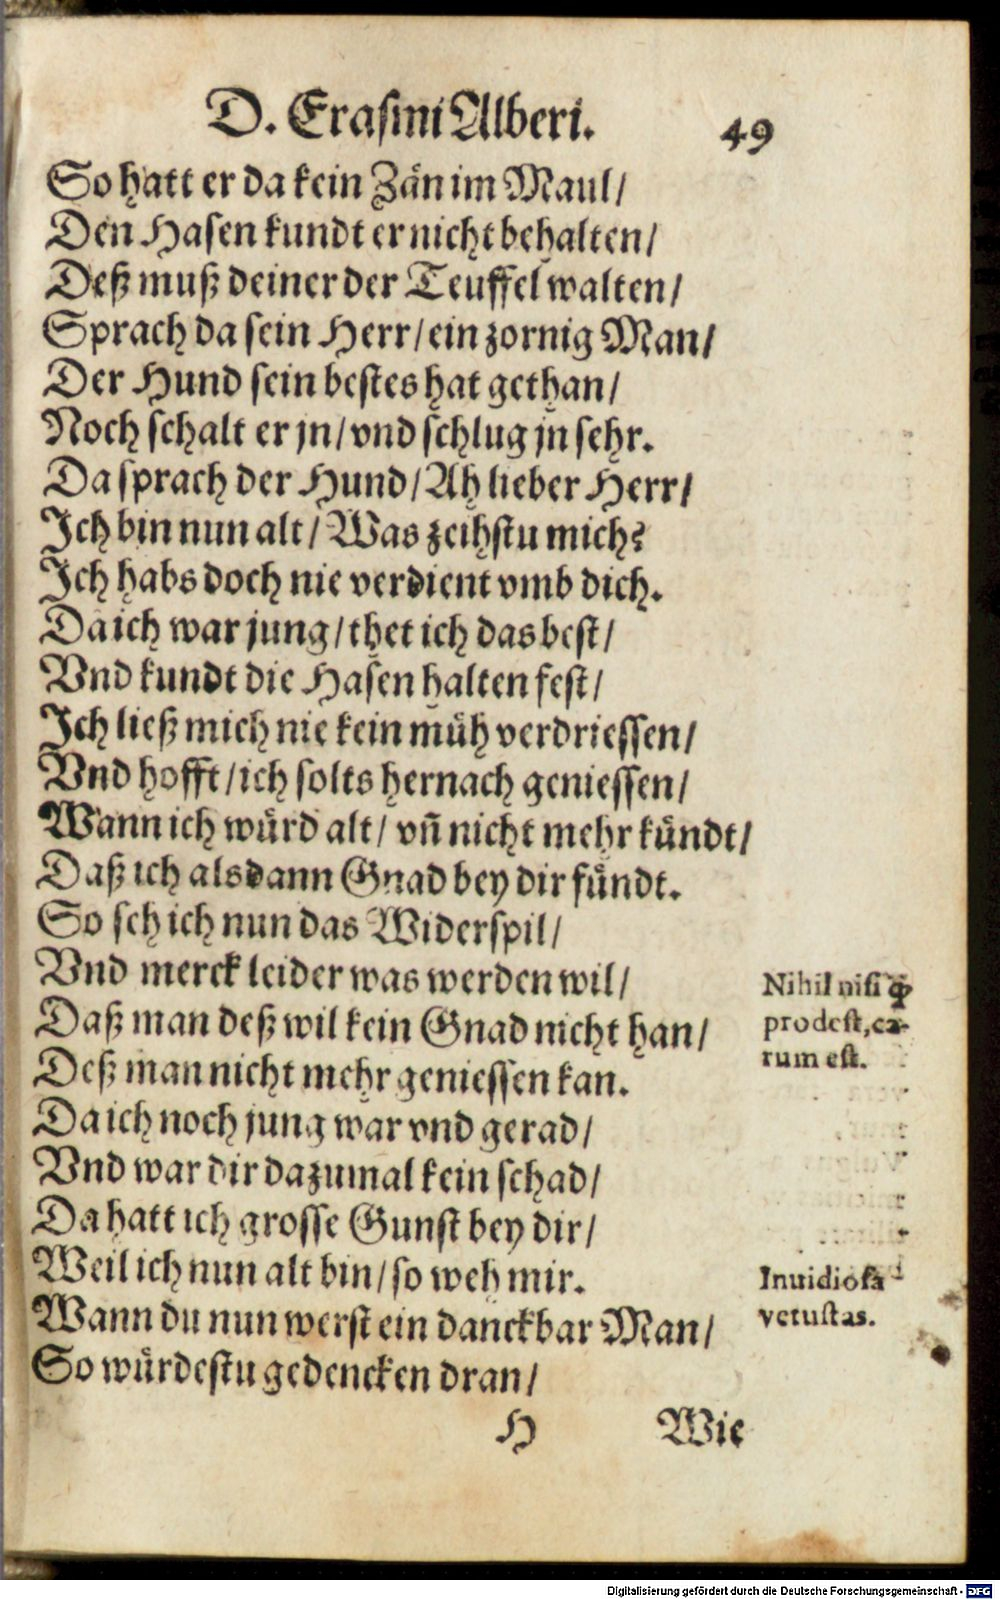 D. Erasmi Alberi. 49
So hatt er da kein Zän im Maul/
Den Hasen kundt er nicht behalten/
Deß muß deiner der Teuffel walten/
Sprach da sein Herr/ ein zornig Man/
Der Hund sein bestes hat gethan/
Noch schalt er jn/ vnd schlug jn sehr.
Da sprach der Hund/ Ah lieber Herr/
Ich bin nun alt/ Was zeihstu mich?
Ich habs doch nie verdient vmb dich.
Da ich war jung/ thet ich das best/
Vnd kundt die Hasen halten fest/
Ich ließ mich nie kein müh verdriessen/
Vnd hofft/ ich solts hernach geniessen/
Wann ich würd alt/ vñ nicht mehr kündt/
Daß ich alsdann Gnad bey dir fündt.
So seh ich nun das Widerspil/
Vnd merck leider was werden wil/
Daß man deß wil kein Gnad nicht han/
Deß man nicht mehr geniessen kan.
Da ich noch jung war vnd gerad/
Vnd war dir dazumal kein schad/
Da hatt ich grosse Gunst bey dir/
Weil ich nun alt bin/ so weh mir.
Wann du nun werst ein danckbar Man/
So würdestu gedencken dran/
H Wie
Nihil nisi ꝙ
prodest, ca-
rum est.
Inuidiosa
vetustas.
Digitalisierung gefördert durch die Deutsche Forschungsgemeinschaft - DFG